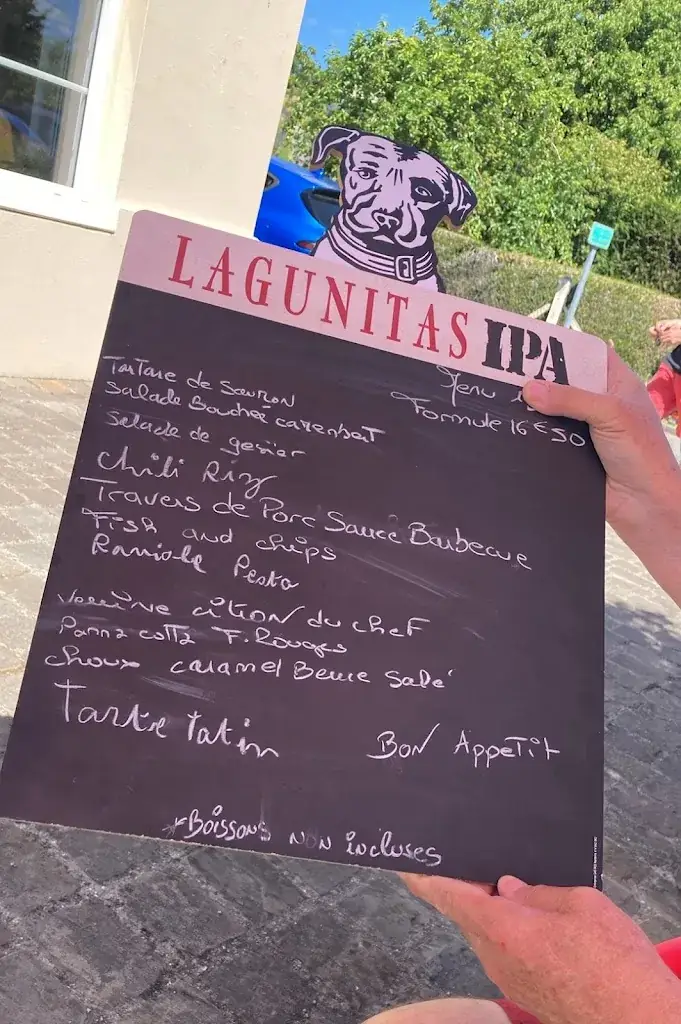 LAGUNITAS IPA
Menu
Formule 16€50
Tartare de Saumon
Salade Bouchée camenbert
Salade de gesier
Chili Riz
Travers de Porc Sauce Barbecue
Fish and chips
Raviole Pesto
Verrine citron du chef
Panna cotta F. Rouges
choux caramel Beurre salé
Tartre tatin
Bon Appetit
*Boissons non incluses